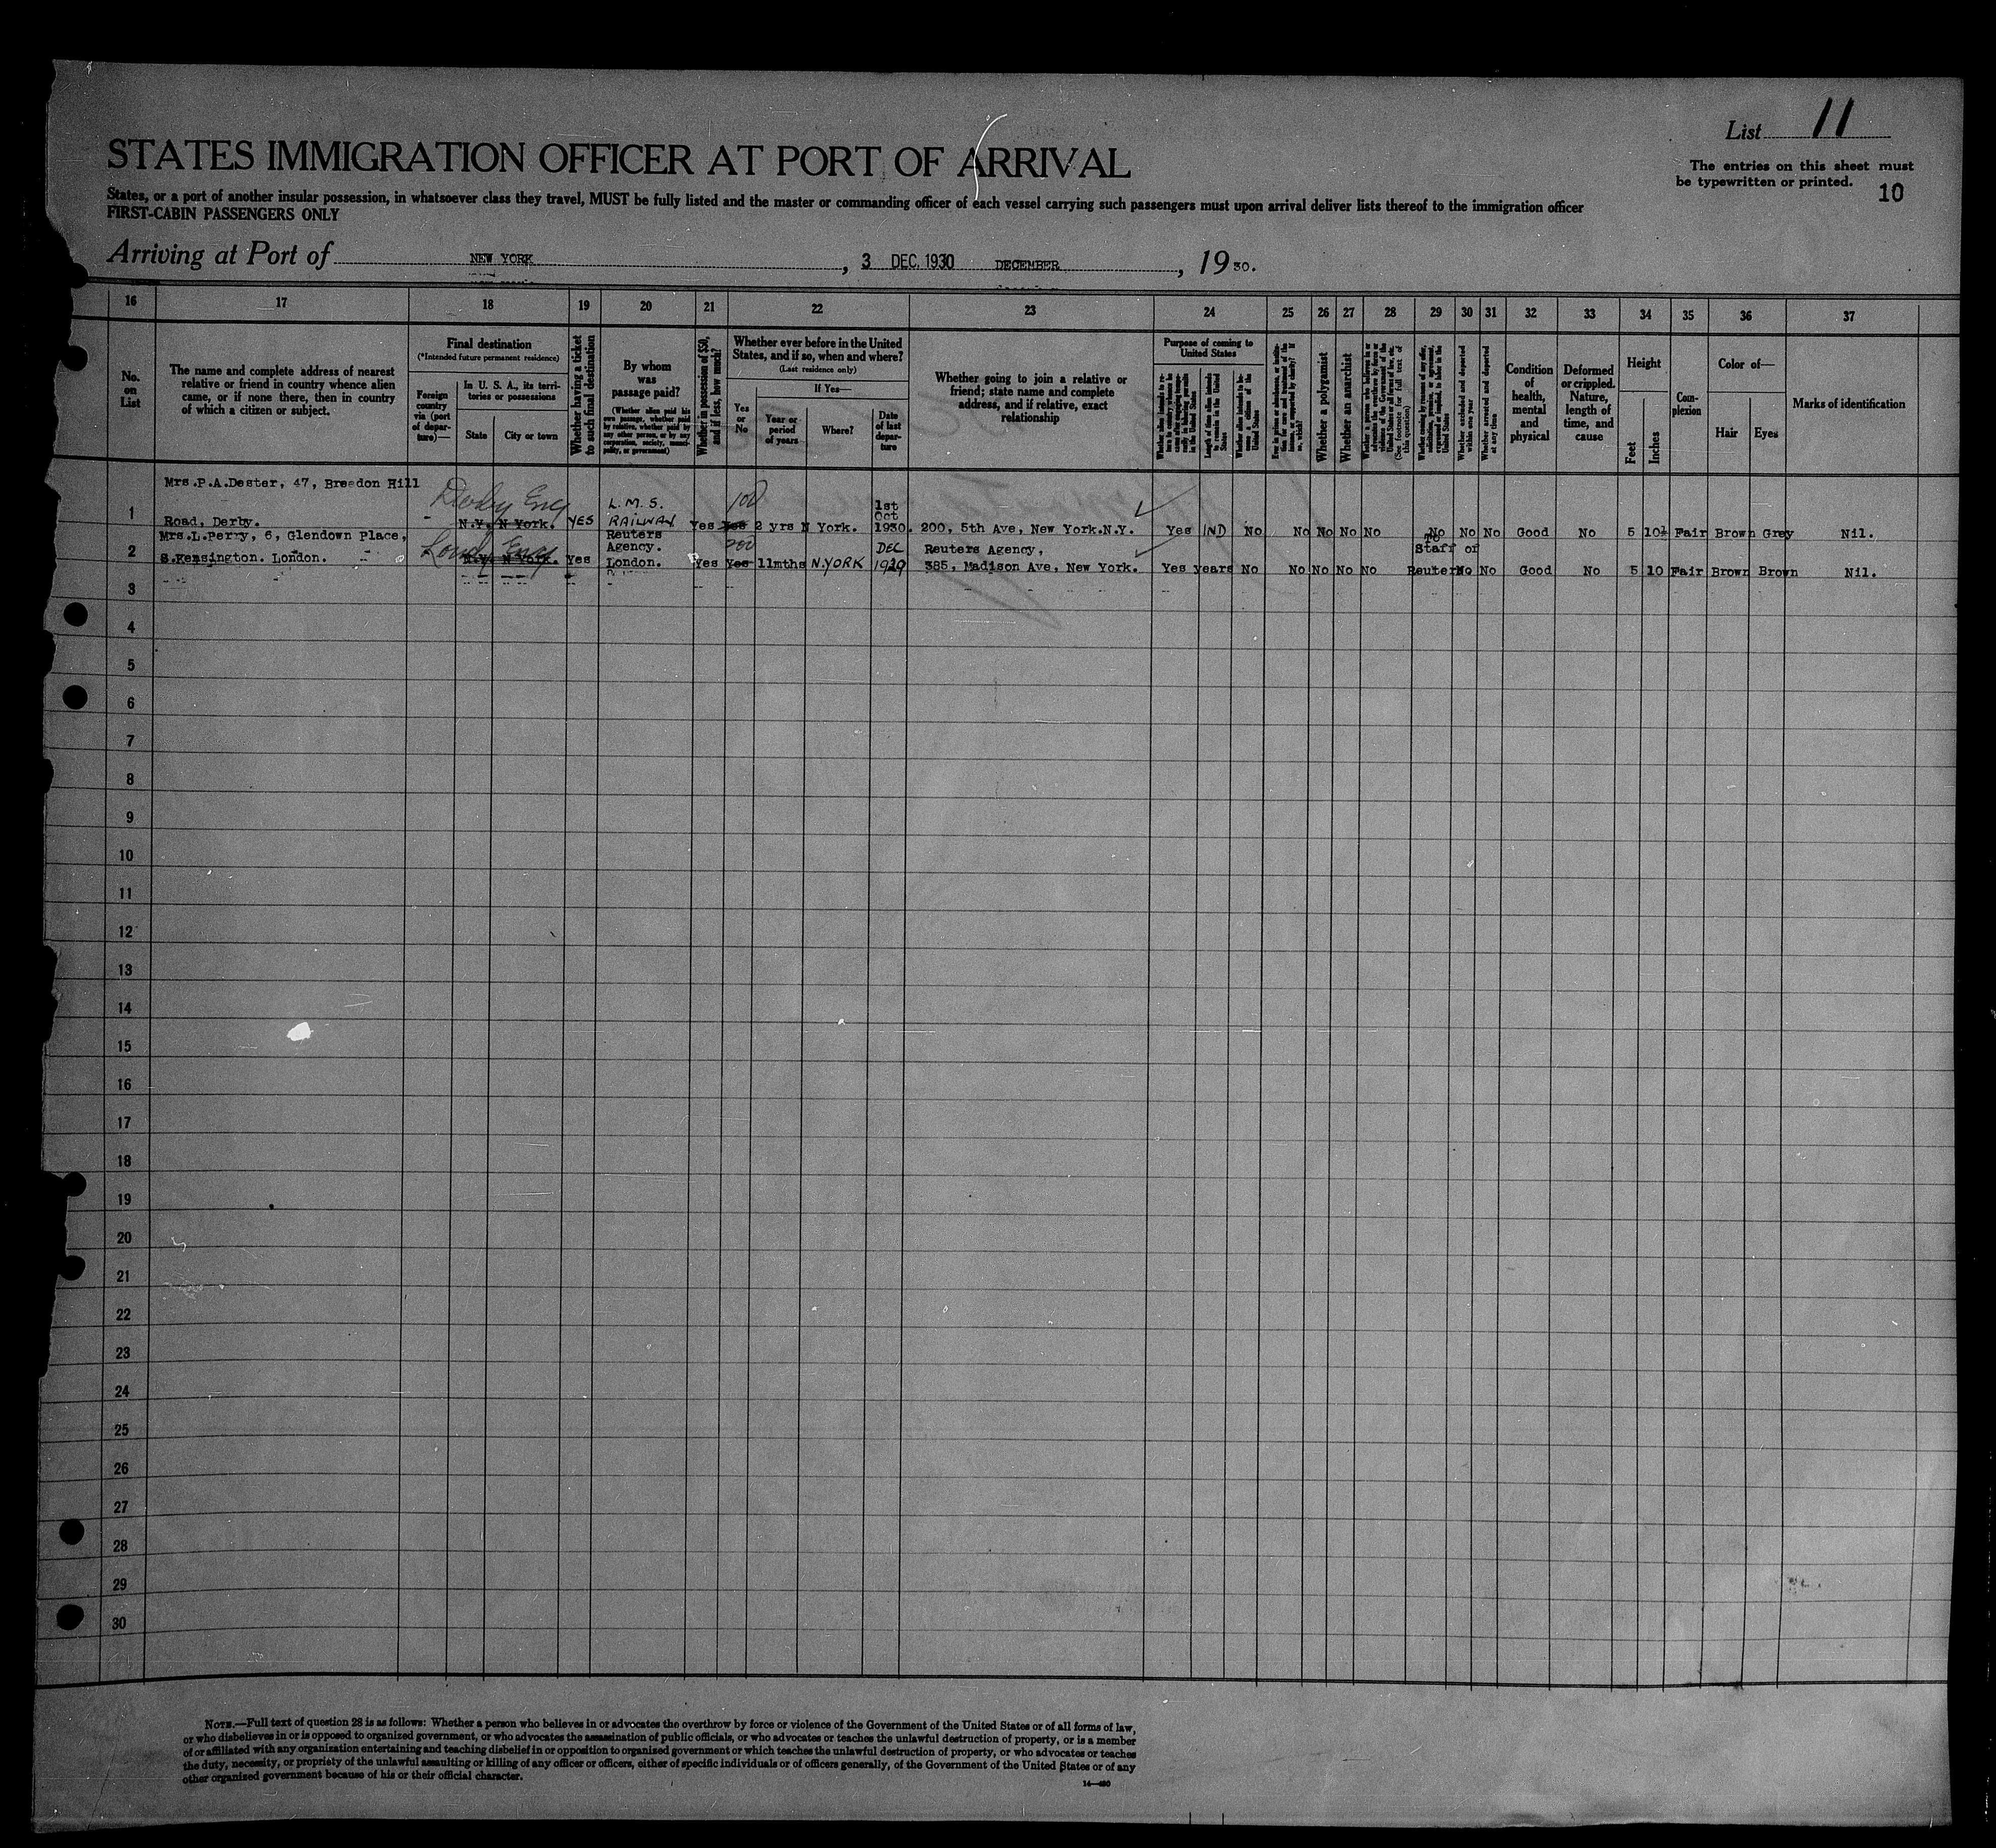 List 11
The entries on this sheet must
be typewritten or printed.
10
STATES IMMIGRATION OFFICER AT PORT OF ARRIVAL
States, or a port of another insular possession, in whatsoever class they travel, MUST be fully listed and the master or commanding officer of each vessel carrying such passengers must upon arrival deliver lists thereof to the immigration officer
FIRST-CABIN PASSENGERS ONLY
Arriving at Port of NEW YORK, 3 DEC. 1930 DECEMBER, 19 30.
16 17 18 19 20 21 22 23 24 25 26 27 28 29 30 31 32 33 34 35 36 37
No.
on
List
The name and complete address of nearest
relative or friend in country whence alien
came, or if none there, then in country
of which a citizen or subject.
Final destination
(*Intended future permanent residence)
Foreign
country
via (port
of depar-
ture)—
In U. S. A., its terri-
tories or possessions
State
City or town
Whether having a ticket
to such final destination
By whom
was
passage paid?
(Whether alien paid his
own passage, whether paid
by relative, whether paid by
any other person, or by any
corporation, society, munici-
pality, or government)
Whether in possession of $50,
and if less, how much?
Whether ever before in the United
States, and if so, when and where?
(Last residence only)
Yes
or
No
If Yes—
Year or
period
of years
Where?
Date
of last
depar-
ture
Whether going to join a relative or
friend; state name and complete
address, and if relative, exact
relationship
Purpose of coming to
United States
Length of time alien intends
to remain in the United
States
Whether alien intends to be-
come a citizen of the
United States
Whether a polygamist
Whether an anarchist
(See footnote for full text of
this question)
Whether arrested and deported
at any time
Condition
of
health,
mental
and
physical
Deformed
or crippled.
Nature,
length of
time, and
cause
Height
Feet
Inches
Com-
plexion
Color of—
Hair
Eyes
Marks of identification
Mrs.P.A.Dester, 47, Breedon Hill
Derby Eng
L.M.S.
100
1st
Oct
1 Road, Derby. N.Y. N York. YES RAILWAY Yes Yes 2 yrs N York. 1930. 200, 5th Ave, New York.N.Y. Yes IND No No No No No No No No Good No 5 10½ Fair Brown Grey Nil.
Mrs.L.Perry, 6, Glendown Place,
Reuters
Lond Eng
Agency.
200
DEC
Reuters Agency,
To
Staff of
2 S.Kensington. London. N.Y. N York. Yes London. Yes Yes 11mths N.YORK 1929 385, Madison Ave, New York. Yes years No No No No No Reuters No No Good No 5 10 Fair Brown Brown Nil.
3
4
5
6
7
8
9
10
11
12
13
14
15
16
17
18
19
20
21
22
23
24
25
26
27
28
29
30
NOTE.—Full text of question 28 is as follows: Whether a person who believes in or advocates the overthrow by force or violence of the Government of the United States or of all forms of law,
or who disbelieves in or is opposed to organized government, or who advocates the assassination of public officials, or who advocates or teaches the unlawful destruction of property, or is a member
of or affiliated with any organization entertaining and teaching disbelief in or opposition to organized government or which teaches the unlawful destruction of property, or who advocates or teaches
the duty, necessity, or propriety of the unlawful assaulting or killing of any officer or officers, either of specific individuals or of officers generally, of the Government of the United States or of any
other organized government because of his or their official character.
14—480